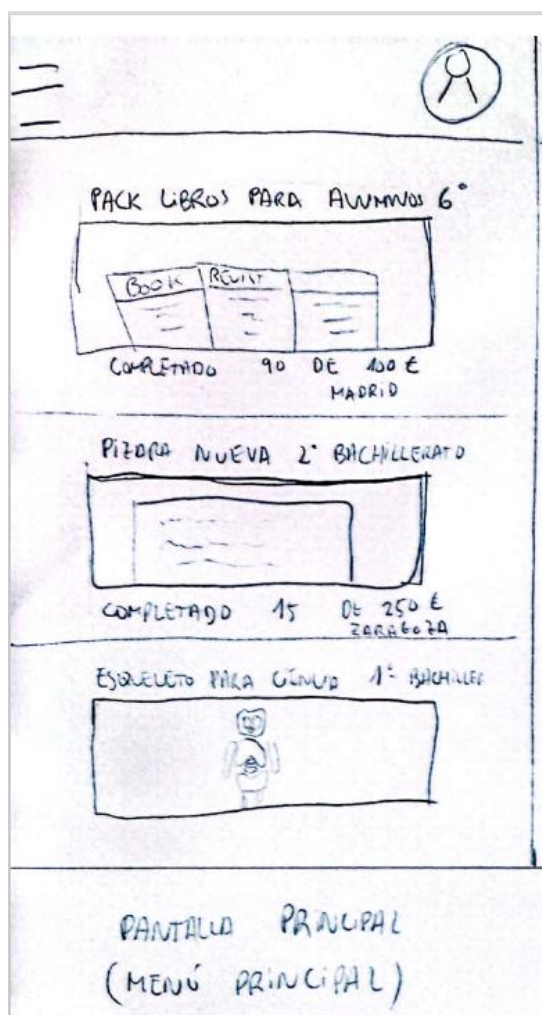 PACK LIBROS PARA ALUMNOS 6°
BOOK REVIST
COMPLETADO 90 DE 100 €
MADRID
PIZARA NUEVA 2° BACHILLERATO
COMPLETADO 15 DE 250 €
ZARAGOZA
ESQUELETO PARA CIENCIA 1° BACHILLER
PANTALLA PRINCIPAL
(MENÚ PRINCIPAL)